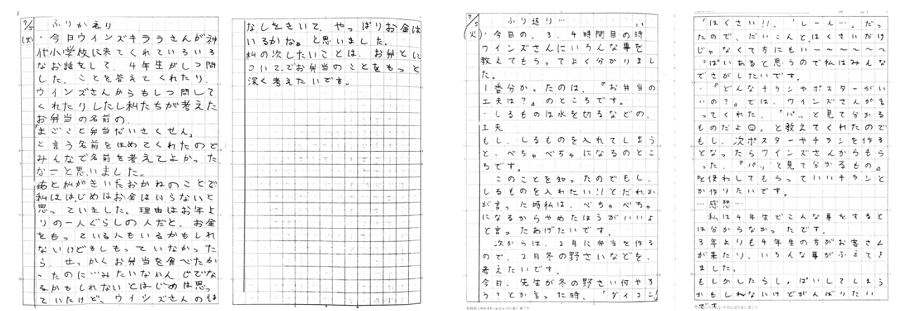 7/5 ふりかえり
(火)・今日ウインズキララさんが神
代小学校に来てくれていろいろ
なお話をして、4年生がしつ問
した、ことを答えてくれたり、
ウインズさんからもしつ問して
くれたりしたし私たちが考えた
お弁当の名前の、
「まごこと弁当だいさくせん」
と言う名前をほめてくれたので
みんなで名前を考えてよかった
なーと思いました。
私がきいたおかねのことで
私ははじめはお金はいらないと
思っていました。理由はお年よ
りの一人ぐらしの人だと、お金
をもっている人もいるかもしれ
ないけどもしもっていなかった
ら、せっかくお弁当を食べたか
ったのに…みたいなかんじでな
るかもしれないとはじめは思っ
ていたけど、ウインズさんのは
なしをきいて、やっぱりお金は
いるかな。と思いました。
私の次したいことは、お弁とに
ついてでお弁当のことをもっと
深く考えたいです。
7/5 ふり返り…
(火)・今日の、3、4時間目の時
ウインズさんにいろんな事を
教えてもらってよく分かりまし
た。
1番分かったのは、『お弁当の
工夫は?』のところです。
・しるものは水を切るなどの、
工夫
もし、しるものを入れてしまう
と、べちゃべちゃになるのとこ
ろです。
このことを知ったのでもし、
しるものを入れたい!!とだれか
が言った時私は、べちゃべちゃ
になるからやめたほうがいいよ
と言ってあげたいです。
次からは、2月に弁当を作る
ので、2月冬の野さいなどを、
考えたいです。
今日、先生が冬の野さい何やろ
う?とか言った時、「ダイコン」
「はくさい!!」「しーん…。だっ
たので、だいこんとはくさいだけ
じゃなくて古にもい〜〜〜〜〜
っぱいあると思うので私はみんな
でさがしたいです。
・『どんなチラシやポスターがい
いの?』では、ウインズさんが言
ってくれた、「パッと見て分かる
ものだよ☺」と教えてくれたので
もし、次ポスターやチラシを作る
となったらウインズさんからもら
った、「パッと見て分かるもの」
を使わしてもらっていいチラシと
か作りたいです。
…感想…
私は4年生でこんな事をすると
は分からなかったです。
3年よりも4年生の方がお客さん
が来たり、いろんな事がふえてき
ました。
もしかしたらし、ぱいしてしまう
かもしれないけどがんばりたい
です。